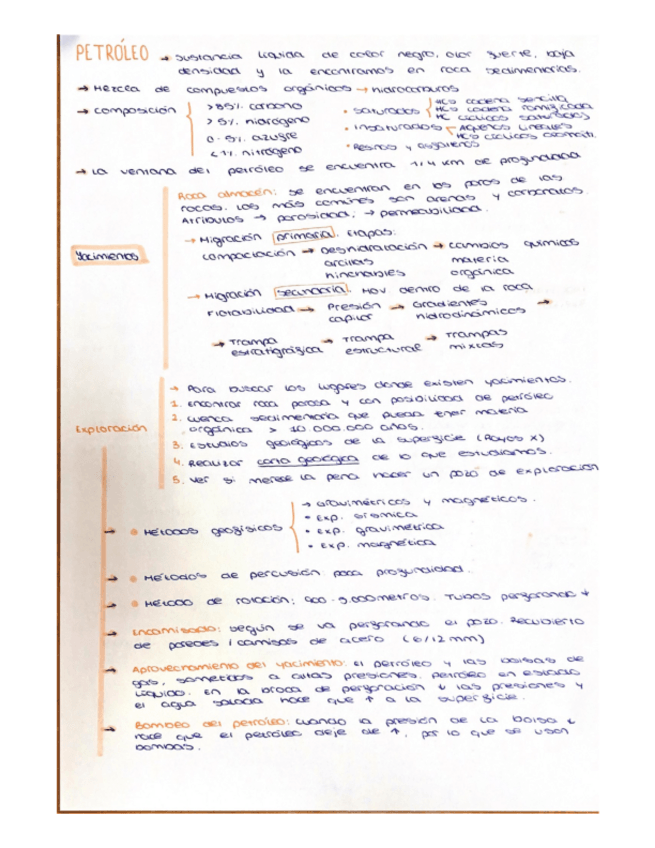 PETRÓLEO → sustancia líquida de color negro, olor fuerte, baja
densidad y la encontramos en roca sedimentarias.
→ Mezcla de compuestos orgánicos → hidrocarburos
→ composición
> 85% carbono
> 5% hidrógeno
0-5% azufre
< 1% nitrógeno
• saturados
HCs cadena sencilla
HCs cadena ramificada
HC cíclicos saturados
• Insaturados
Alquenos lineales
HCs cíclicos
• Resinas y asfaltenos
→ La ventana del petróleo se encuentra 1/4 km de profundidad
Yacimientos
Roca almacén: se encuentran en los poros de las
rocas. Los más comunes son arenas y carbonatos
Atributos → porosidad; → permeabilidad.
→ Migración primaria. Etapas:
compactación → Deshidratación → cambios químicos
arcillas materia
hinchables orgánica
→ Migración secundaria. Mov dentro de la roca
flotabilidad → Presión → Gradientes →
capilar hidrodinámicos
→ Trampa → Trampa → Trampas
estratigráfica estructural mixtas
Exploración
→ Para buscar los lugares donde existen yacimientos.
1. encontrar roca porosa y con posibilidad de petróleo
2. cuenca sedimentaria que pueda tener materia
orgánica > 10.000.000 años.
3. Estudios geológicos de la superficie (Rayos X)
4. Realizar carta geológica de lo que estudiamos.
5. Ver si merece la pena hacer un pozo de exploración
→ • Métodos geofísicos
→ Gravimétricos y magnéticos.
• Exp. sísmica
• Exp. gravimétrica
• Exp. magnética
→ • Métodos de percusión poca profundidad.
→ • Método de rotación: 900-9.000 metros. Tubos perforando ↓
→ Encamisado: según se va perforando el pozo. Recubierto
de paredes / camisas de acero (6/12 mm)
→ Aprovechamiento del yacimiento: el petróleo y las bolsas de
gas, sometidos a altas presiones. petróleo en estado
líquido. En la broca de perforación ↓ las presiones y
el agua salada hace que ↑ a la superficie.
→ Bombeo del petróleo: cuando la presión de la bolsa ↓
hace que el petróleo deje de ↑, por lo que se usan
bombas.